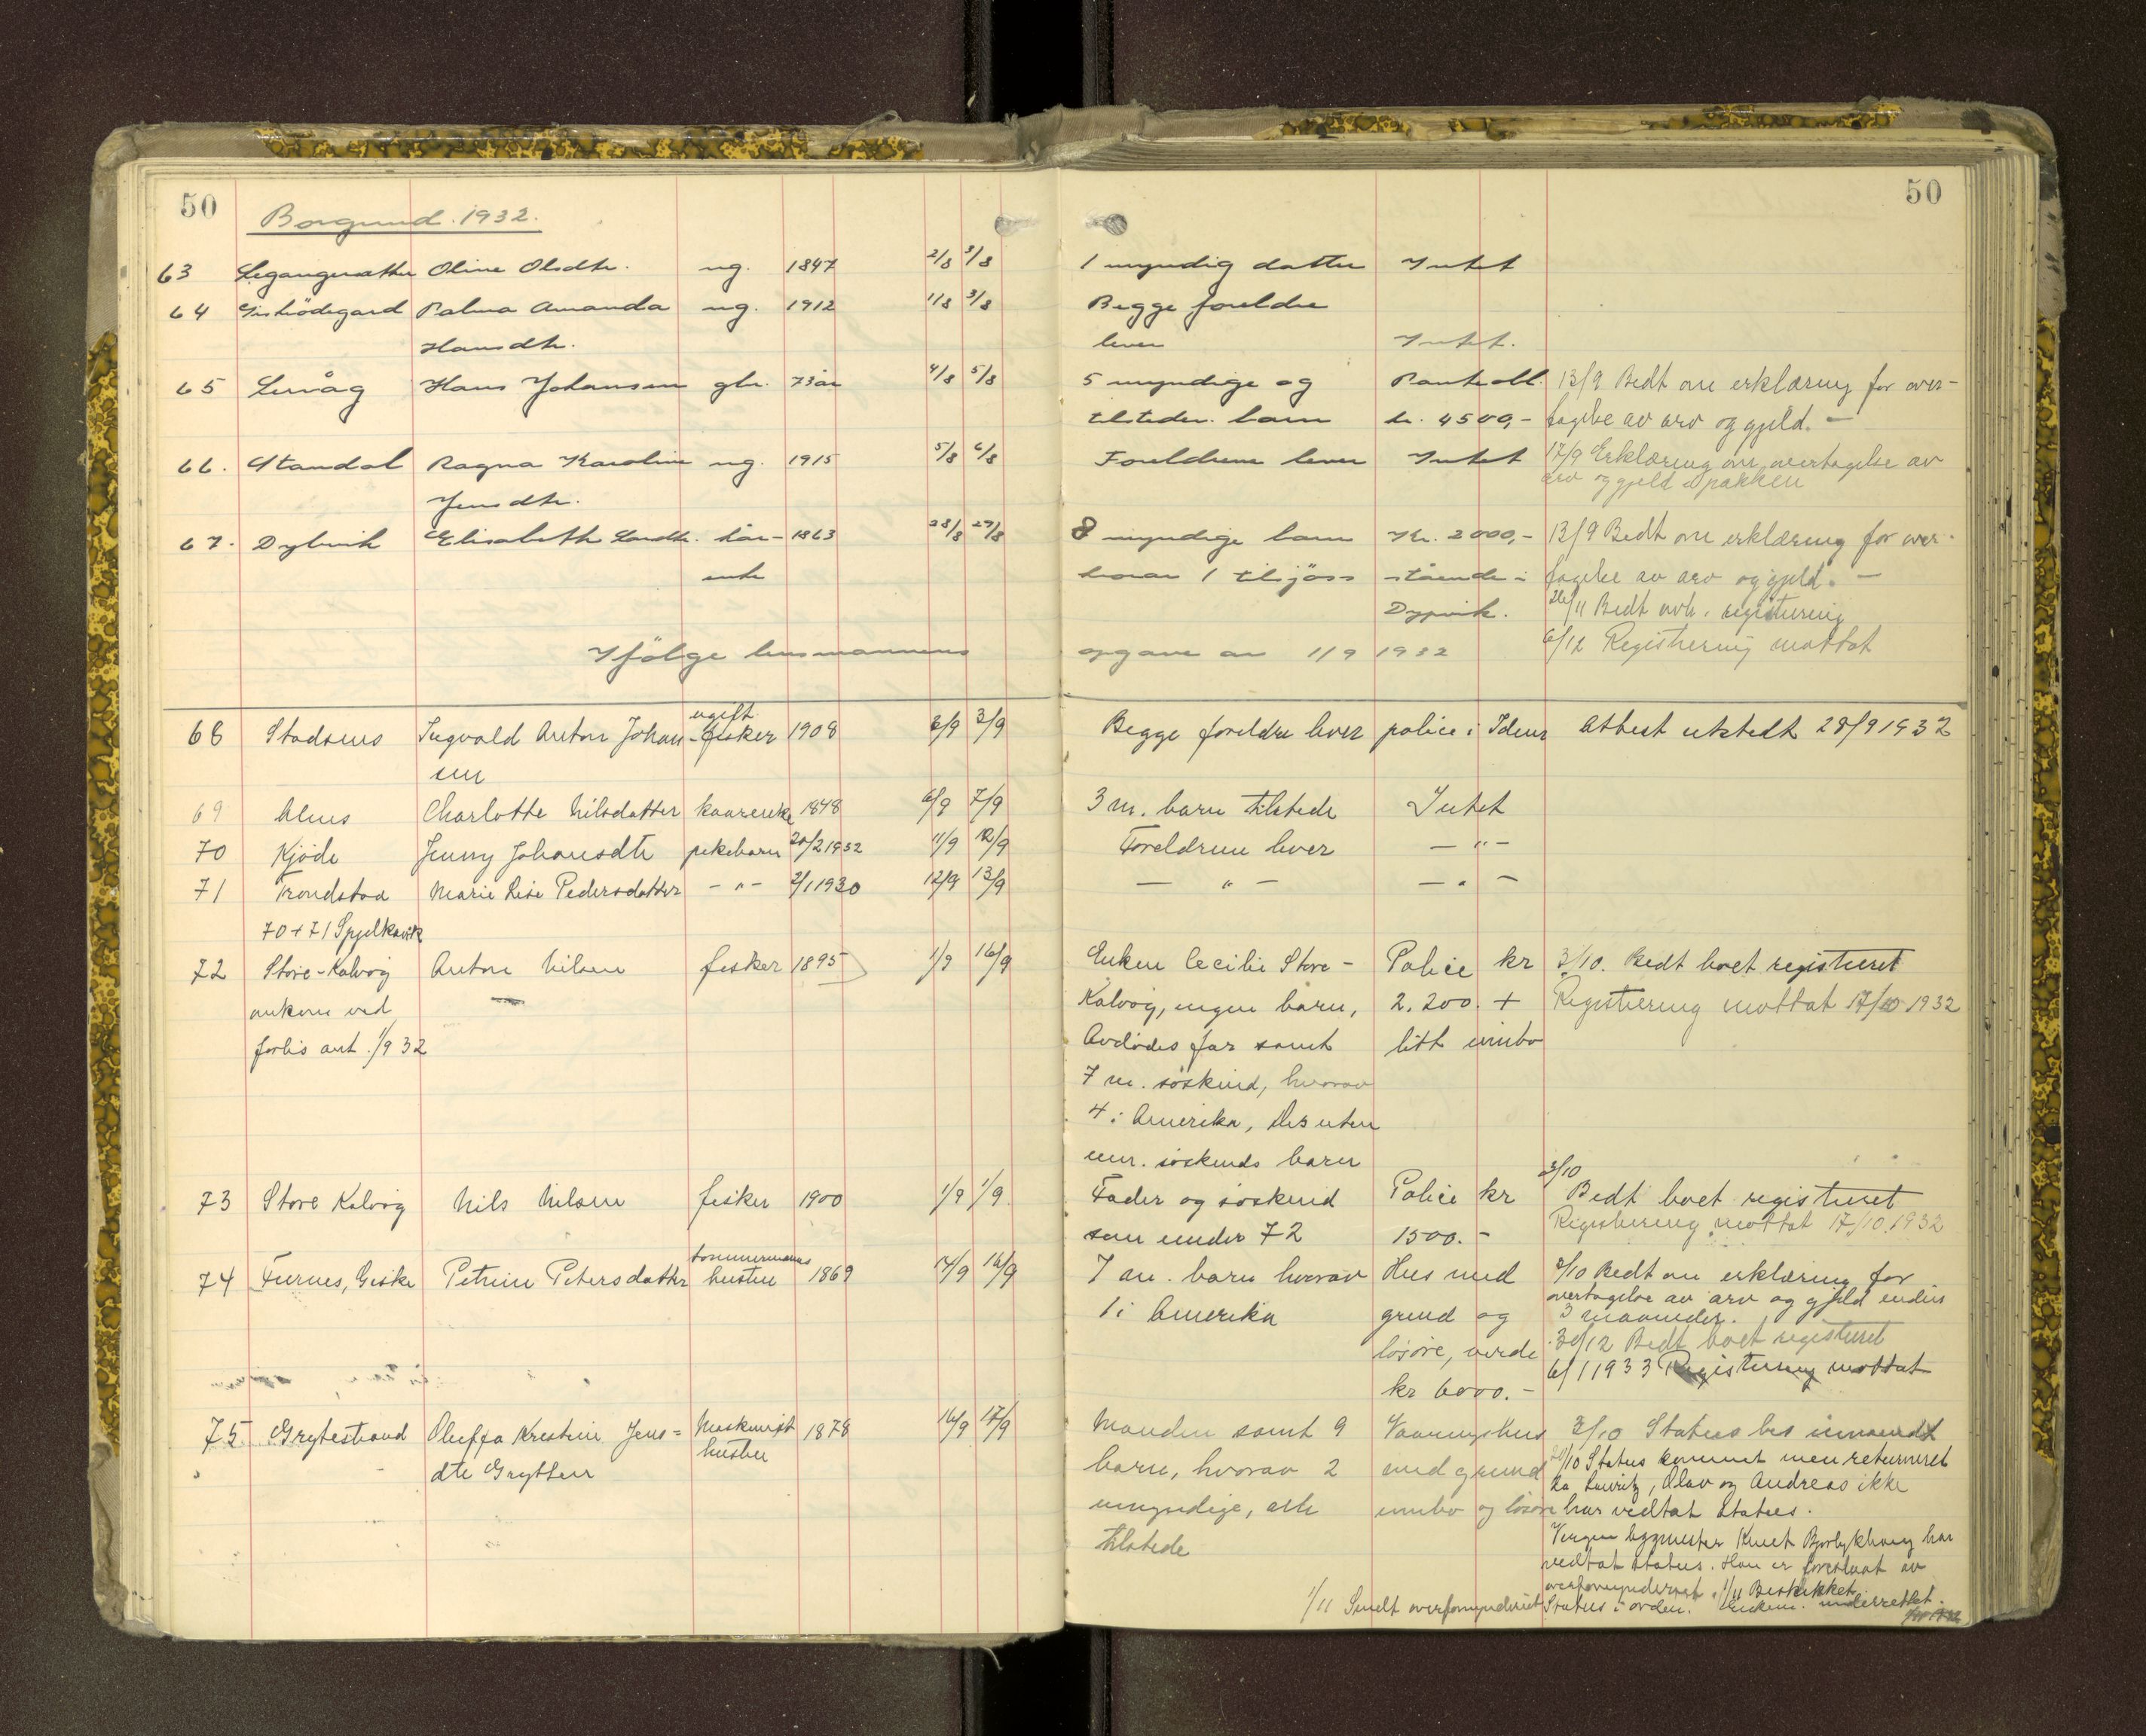 50
Borgund. 1932.
50
63 Oline Olsdtr. ug. 1847 2/8 3/8 1 myndig datter Intet
64 Palma Amanda ug. 1912 1/8 3/8 Begge foreldre
Hansdtr. lever Intet.
65 Levåg Hans Johansen gbr. 73 år 4/8 5/8 5 myndige og Panteobl. 13/9 Bedt om erklæring for over-
tilsteder. barn kr. 4500,- tagelse av arv og gjeld. —
66. Standal Ragna Karoline ug. 1915 5/8 6/8 Foreldrene lever Intet 17/9 Erklæring om overtagelse av
Jensdtr. arv og gjeld i pakken
67. Dybvik Elisabeth kår- 1863 28/8 29/8 8 myndige barn Kr. 2000,- 13/9 Bedt om erklæring for over-
enke hvorav 1 tilsjøss stående i tagelse av arv og gjeld. —
Dypvik. 26/11 Bedt avh. registrering
Ifølge lensmannens opgave av 1/9 1932 6/12 Registrering mottat
68 Stadsnes Ingvald Anton Johan- ugift fisker 1908 2/9 3/9 Begge foreldre lever police i Idun Attest utstedt 28/9 1932
sen
69 Alnes Charlotte Nilsdatter kaarenke 1848 6/9 7/9 3 m. barn tilstede Intet
70 Kjöde Jenny Johansdtr pikebarn 20/2 1932 11/9 12/9 Foreldrene lever — " —
71 Trondstad Marie Lise Pedersdatter — " — 2/1 1930 12/9 13/9 — " — — " —
70 + 71 Spjelkavik
72 Store-Kalvøg Anton Nilsen fisker 1895 1/9 16/9 Enken Cecilie Store- Police kr 3/10. Bedt boet registreret
omkom ved Kalvøg, ingen barn, 2.200. + Registrering mottat 17/10 1932
forlis ant. 1/9 32 Avdødes far samt litt innbo
7 m. søskend, hvorav
4 i Amerika, Des uten
um. søskends barn
73 Store Kalvøg Nils Nilsen fisker 1900 1/9 1/9. Fader og søskend Police kr 3/10 Bedt boet registreret
som under 72 1500.- Registrering mottat 17/10 1932
74 Furnes, Giske Petrine Petersdatter tømmermanns hustru 1869 14/9 16/9 7 m. barn hvorav Hus med 3/10 Bedt om erklæring for
1 i Amerika grund og overtagelse av arv og gjeld inden
3 maaneder.
løsøre, verdi 30/12 Bedt boet registreret
kr 6000.- 6/1 1933 Registrering mottat
75 Grytestrand Oluffa Kristine Jens= Maskinist hustru 1878 16/9 17/9 Manden samt 9 Vaaningshus 3/10 Status bes innsendt
dtr Grytten barn, hvorav 2 med grund 20/10 Status kommet men returneret
da Lauritz, Olav og Andreas ikke
umyndige, alle innbo og løsøre har vedtat status.
tilstede Vergen byggmester Knut har
vedtat status. Han er foreslaat av
overformynderiet. 1/11 Beskikket.
1/11 Sendt overformynderiet Status i orden. Enken underrettet.